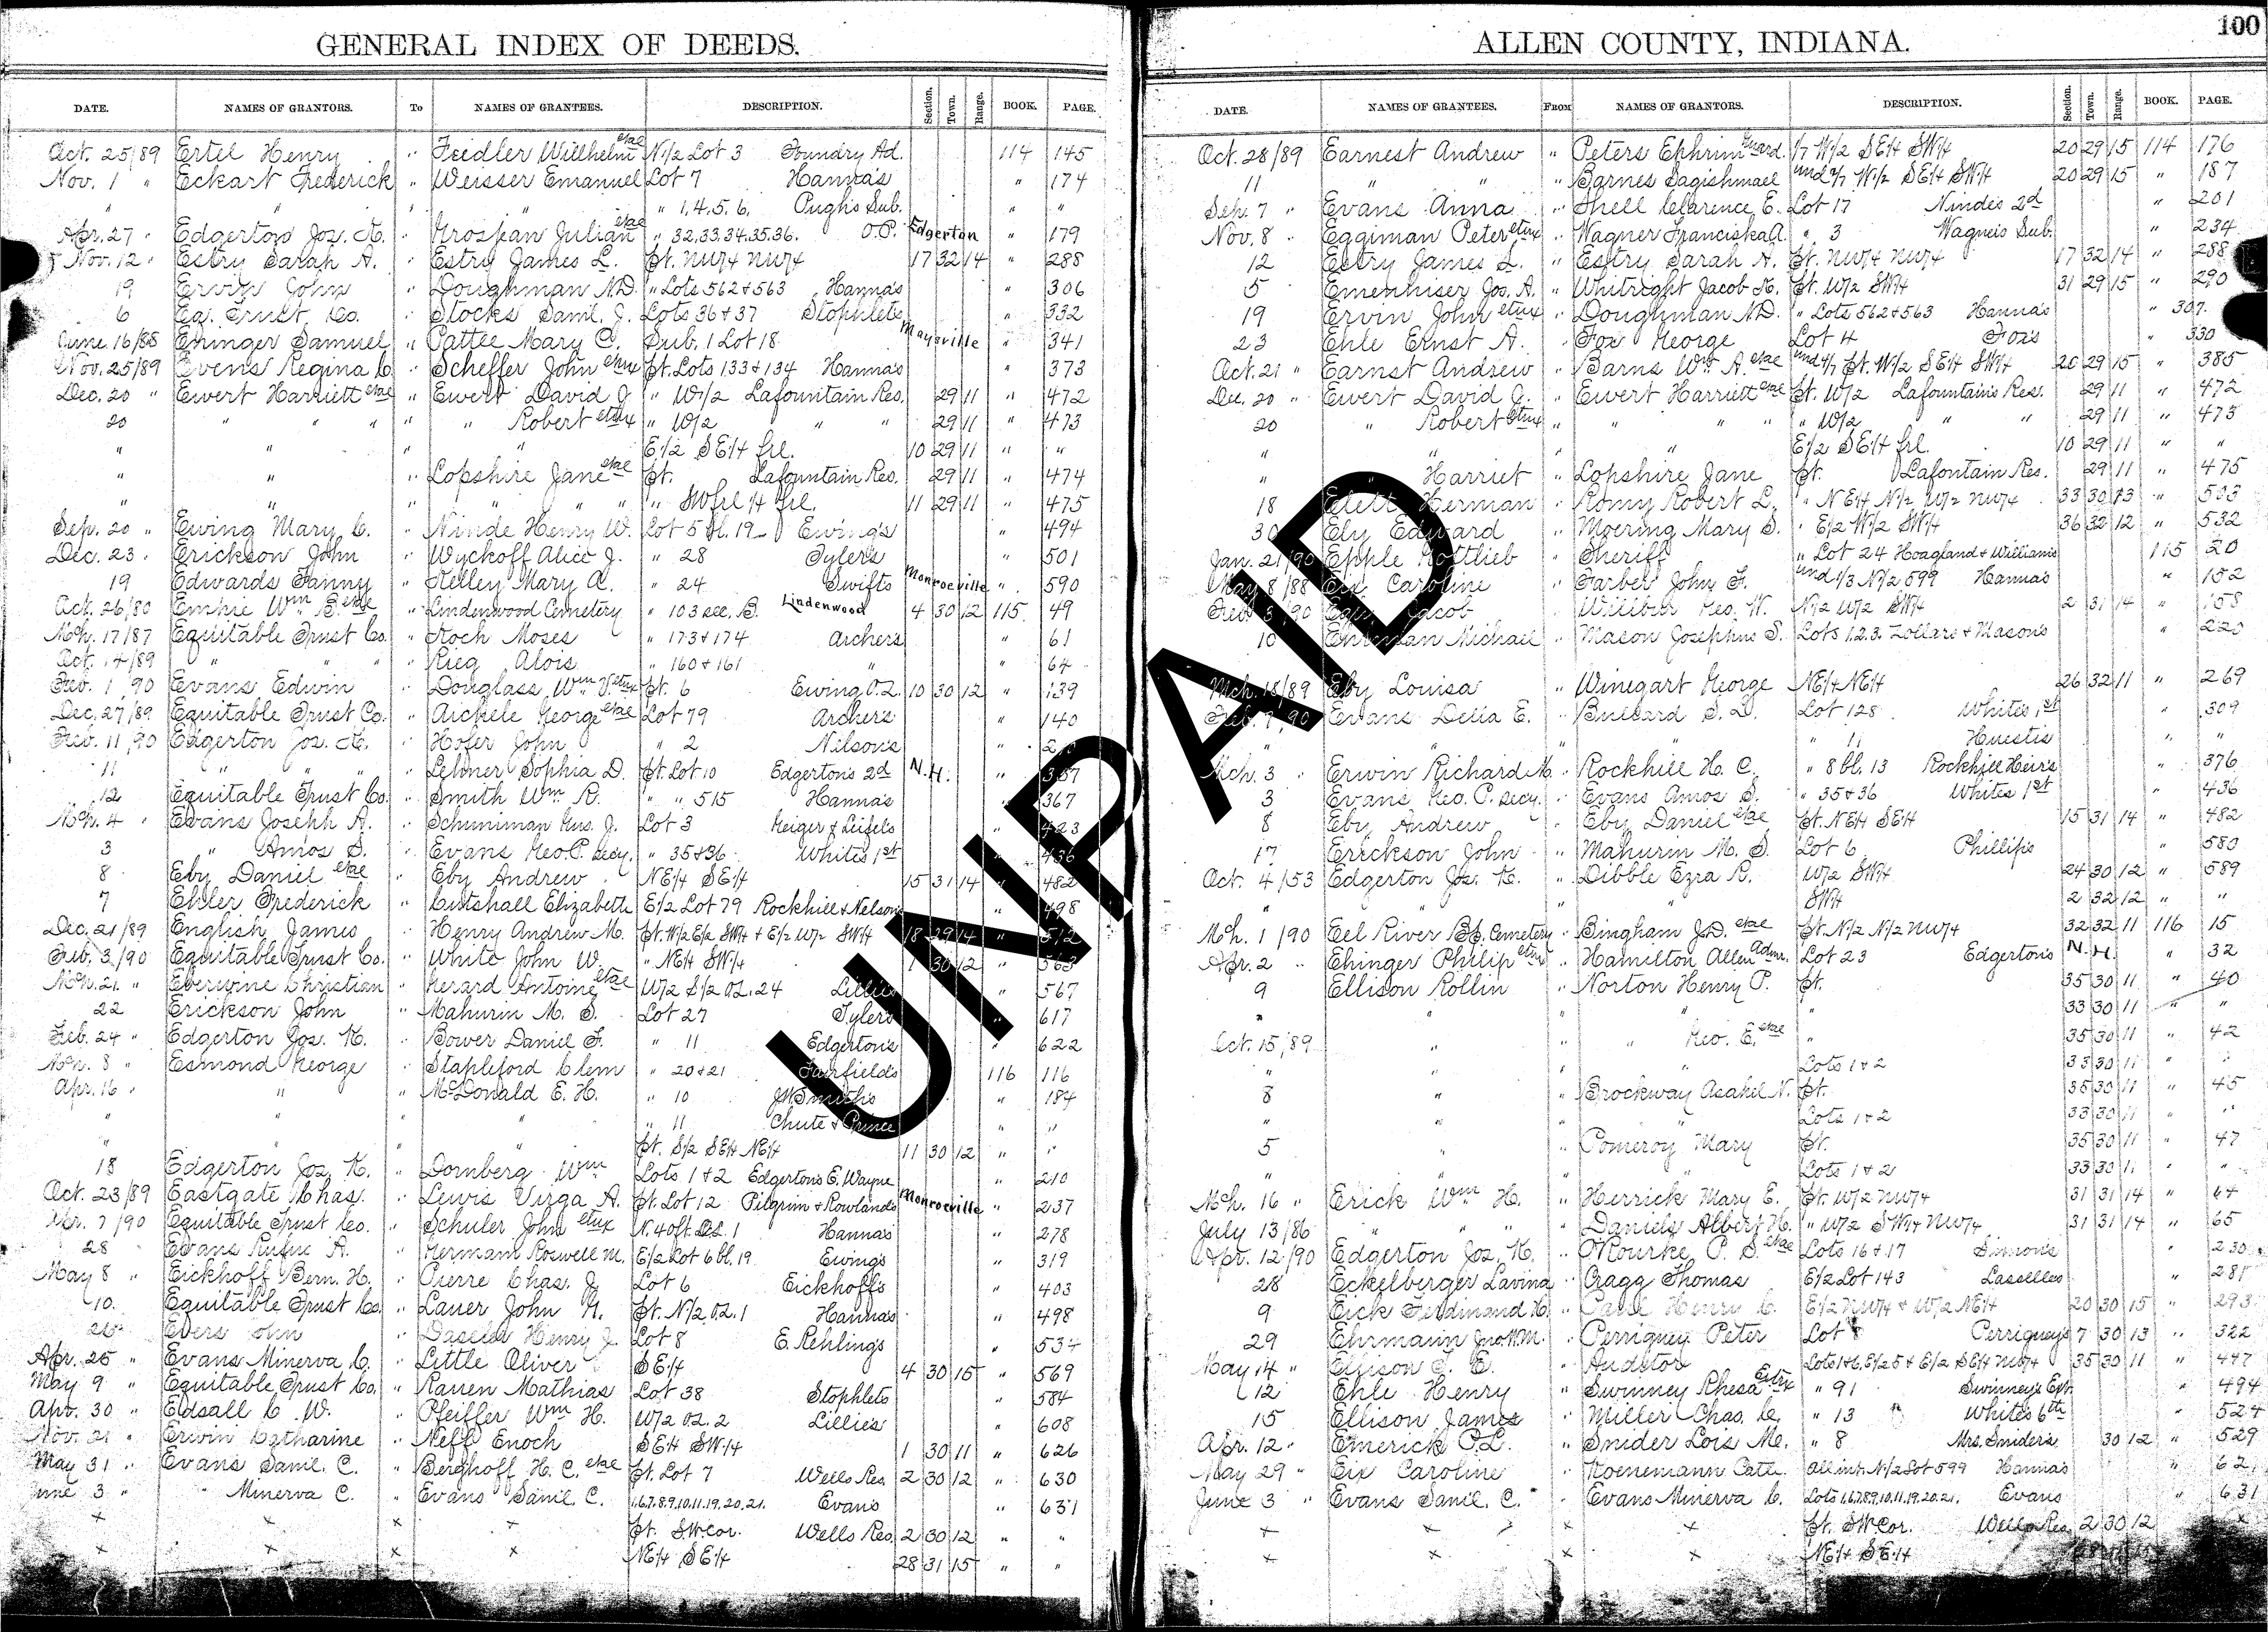 GENERAL INDEX OF DEEDS.
DATE. NAMES OF GRANTORS. To NAMES OF GRANTEES. DESCRIPTION. Section. Town. Range. BOOK. PAGE.
Oct. 25/89 Ertel Henry " Feidler Willhelm etal N1/2 Lot 3 Foundry Ad. 114 145
Nov. 1 " Eckart Frederick " Weisser Emanuel Lot 7 Hanna's " 174
" " " " " 1, 4, 5, 6, Pugh's Sub. " "
Apr. 27 " Edgerton Jos. K. " Grosjean Julian etal " 32,33,34,35,36. O.P. Edgerton " 179
Nov. 12 " Estry Sarah A. " Estry James L. Pt. NW/4 NW/4 17 32 14 " 288
19 Ervin John " Doughman N.D. " Lots 562+563 Hanna's " 306
6 Eq. Trust Co. " Stocks Saml. J. Lots 36+37 Stophlets " 332
June 16/85 Ehinger Samuel " Pattee Mary C. Sub. 1 Lot 18 Maysville " 341
Nov. 25/89 Evens Regina C. " Scheffer John etux Pt. Lots 133+134 Hanna's " 373
Dec. 20 " Ewert Harriett etal " Ewert David J. " W1/2 Lafountain Res. 29 11 " 472
20 " " " " " Robert etux " W/2 " " 29 11 " 473
" " " " E/2 SE/4 frl. 10 29 11 " "
" " " Lopshire Jane etal Pt. Lafountain Res. 29 11 " 474
" " " " " " " SW frl 1/4 frl. 11 29 11 " 475
Sep. 20 " Ewing Mary C. " Ninde Henry W. Lot 5 Bl. 19 Ewing's " 494
Dec. 23 " Erickson John " Wyckoff Alice J. " 28 Tyler's " 501
19 Edwards Fanny " Kelley Mary A. " 24 Swifts Monroeville " 590
Oct. 26/80 Empie Wm B. etal " Lindenwood Cemetery " 103 sec. B. Lindenwood 4 30 12 115 49
Mch. 17/87 Equitable Trust Co. " Koch Moses " 173+174 Archers " 61
Oct. 14/89 " " " " Rieg Alois " 160+161 " " 64
Feb. 1, 90 Evans Edwin " Douglass Wm V. etux Pt. 6 Ewing O.L. 10 30 12 " 139
Dec. 27/89 Equitable Trust Co. " Aickele George etal Lot 79 Archer's " 140
Feb. 11, 90 Edgerton Jos. K. " Hofer John " 2 Nilson's "
11 " " " " Lehner Sophia D. Pt. Lot 10 Edgerton's 2d N.H. " 357
12 Equitable Trust Co. " Smith Wm R. " " 515 Hanna's " 367
Mch. 4 " Evans Joseph A. " Schuniman Gus. J. Lot 3 Geiger & Leifels " 423
3 " Amos S. " Evans Geo. P. Secy. " 35+36 White's 1st " 436
8 Eby Daniel etal " Eby Andrew NE/4 SE/4 15 31 14 " 482
7 Ehler Frederick " Cutshall Elizabeth E/2 Lot 79 Rockhill + Nelson's " 498
Dec. 21/89 English James " Henry Andrew M. Pt. W/2 E/2 SW/4 + E/2 W/2 SW/4 18 29 14 " 512
Feb. 3/90 Equitable Trust Co. " White John W. " NE/4 SW/4 1 30 12 " 563
Mch. 21 " Eberwine Christian " Gerard Antoine etal W/2 S/2 O.L. 24 Lillie's " 567
22 Erickson John " Mahurin M. S. Lot 27 Tyler's " 617
Feb. 24 " Edgerton Jos. K. " Bower Daniel F. " 11 Edgerton's " 622
Mch. 8 " Esmond George " Stapleford Clem " 20+21 Fairfield's 116 116
Apr. 16 " " " McDonald E. H. " 10 J M Smith's " 184
" " " " " 11 Chute & Prince " "
" " " " Pt. S/2 SE/4 NE/4 11 30 12 " "
18 Edgerton Jos. K. " Dornberg Wm Lots 1+2 Edgerton's E. Wayne " 210
Oct. 23/89 Eastgate Chas. " Lewis Virga A. Pt. Lot 12 Pilgrim + Rowland's Monroeville " 237
Apr. 7/90 Equitable Trust Co. " Schuler John etux N. 40 ft. O.L. 1 Hanna's " 278
28 Evans Rufus A. " German Roswell M. E/2 Lot 6 bl. 19 Ewing's " 319
May 8 " Eickhoff Bern. H. " Pierre Chas. J. Lot 6 Eickhoff's " 403
10. Equitable Trust Co. " Lauer John N. Pt. N/2 O.L. 1 Hanna's " 498
26 Evers John " Daseler Henry J. Lot 8 E. Rehling's " 534
Apr. 25 " Evans Minerva C. " Little Oliver SE/4 4 30 15 " 569
May 9 " Equitable Trust Co. " Rauen Mathias Lot 38 Stophlets " 584
Apr. 30 " Edsall C. W. " Pfeiffer Wm H. W/2 O.L. 2 Lillies " 608
Nov. 21 " Erwin Catharine " Neff Enoch SE/4 SW/4 1 30 11 " 626
May 31 " Evans Saml. C. " Berghoff H. C. etal Pt. Lot 7 Wells Res. 2 30 12 " 630
June 3 " " Minerva C. " Evans Saml. C. 1,6,7,8,9,10,11,19,20,21. Evans " 631
× × × × Pt. SW Cor. Wells Res. 2 30 12 " "
× × × × NE/4 SE/4 28 31 15 " "
ALLEN COUNTY, INDIANA. 100
DATE. NAMES OF GRANTEES. FROM NAMES OF GRANTORS. DESCRIPTION. Section. Town. Range. BOOK. PAGE.
Oct. 28/89 Earnest Andrew " Peters Ephrim Guard. 1/7 W/2 SE/4 SW/4 20 29 15 114 176
11 " " " Barnes Sagishmael und 2/7 W/2 SE/4 SW/4 20 29 15 " 187
Sep. 7 " Evans Anna " Shell Clarence E. Lot 17 Ninde's 2d " 201
Nov. 8 " Eggiman Peter etux " Wagner Franciska A. " 3 Wagner's Sub. " 234
12 Estry James L. " Estry Sarah A. Pt. NW/4 NW/4 17 32 14 " 288
5 Emenhiser Jos. A. " Whitright Jacob K. Pt. W/2 SW/4 31 29 15 " 290
19 Ervin John etux " Doughman N.D. " Lots 562+563 Hanna's " 307
23 Ehle Ernst A. " Fox George Lot 4 Fox's " 330
Oct. 21 " Earnst Andrew " Barns Wm A. etal und 4/7 Pt. W/2 SE/4 SW/4 20 29 15 " 385
Dec. 20 " Ewert David J. " Ewert Harriett etal Pt. W/2 Lafountain's Res. 29 11 " 472
20 " Robert etux " " " " " W/2 " " 29 11 " 473
" " " " E/2 SE/4 frl. 10 29 11 " "
" " Harriet " Lopshire Jane Pt. Lafontain Res. 29 11 " 475
18 Elett Herman " Romy Robert L. " NE/4 N/2 W/2 NW/4 33 30 13 " 503
30 Ely Edward " Moering Mary S. " E/2 W/2 SW/4 36 32 12 " 532
Jan. 21/90 Epple Gottlieb " Sheriff " Lot 24 Hoagland + William's 115 20
May 8/88 Eix Caroline " Farber John F. und 1/3 N/2 599 Hanna's " 152
Feb. 3/90 Egly Jacob " Geo. W. N/2 W/2 SW/4 2 31 14 " 158
10 Ehrman Michael " Mason Josephus S. Lots 1.2.3. Zollars + Mason's " 220
Mch. 18/89 Eby Louisa " Winegart George NE/4 NE/4 26 32 11 " 269
Feb. 7, 90 Evans Delia E. " Bullard S. D. Lot 128 White's 1st " 309
" " " " " 11 Huestis " "
Mch. 3 " Erwin Richard K. " Rockhill H. C. " 8 bl. 13 Rockhill Heir's " 376
3 Evans Geo. P. Secy. " Evans Amos S. " 35+36 White's 1st " 436
8 Eby Andrew " Eby Daniel etal Pt. NE/4 SE/4 15 31 14 " 482
17 Erickson John " Mahurin M. S. Lot 6 Phillips " 580
Oct. 4/53 Edgerton Jos. K. " Dibble Ezra R. W/2 SW/4 24 30 12 " 589
" " " " SW/4 2 32 12 " "
Mch. 1/90 Eel River Bp. Cemetery " Bingham J.D. etal Pt. N/2 N/2 NW/4 32 32 11 116 15
Apr. 2 " Ehinger Philip etux " Hamilton Allen Admr. Lot 23 Edgerton's N. H. " 32
9 Ellison Rollin " Norton Henry P. Pt. 35 30 11 " 40
" " " " 33 30 11 " "
Oct. 15, 89 " " " Geo. E. etal " 35 30 11 " 42
" " " " Lots 1+2 33 30 11 " "
8 " " Brockway Asahel N. Pt. 35 30 11 " 45
" " " " Lots 1+2 33 30 11 " "
5 " " Pomeroy Mary Pt. 35 30 11 " 47
" " " " Lots 1+2 33 30 11 " "
Mch. 16 " Erick Wm H. " Herrick Mary E. Pt. W/2 NW/4 31 31 14 " 64
July 13/86 " " " " Daniels Albert H. " W/2 SW/4 NW/4 31 31 14 " 65
Apr. 12/90 Edgerton Jos. K. " O'Rourke P. S. etal Lots 16+17 Simon's " 230
28 Eckelberger Lavina " Cragg Thomas E/2 Lot 143 Lasselles " 281
9 Eick Ferdinand H. " Henry C. E/2 NW/4 + W/2 NE/4 20 30 15 " 293
29 Ehrmann Jno. W. M. " Perriguey Peter Lot 8 Perriguey's 7 30 13 " 322
May 14 " Ellison T. E. " Auditor Lots 1+6, E/2 5 + E/2 SE/4 NW/4 35 30 11 " 447
12 Ehle Henry " Swinney Rhesa Extx " 91 Swinney's Ext. " 494
15 Ellison James " Miller Chas. C. " 13 White's 6th " 524
Apr. 12 " Emerick P.L. " Snider Lois Mc. " 8 Mrs. Snider's 30 12 " 529
May 29 " Eix Caroline " Koenemann Cath. All int. N/2 Lot 599 Hanna's "
June 3 " Evans Saml. C. " Evans Minerva C. Lots 1,6,7,8,9,10,11,19,20,21. Evans " 631
× × × × Pt. SW Cor. Wells Res. 2 30 12
× × × × NE/4 SE/4
UNPAID